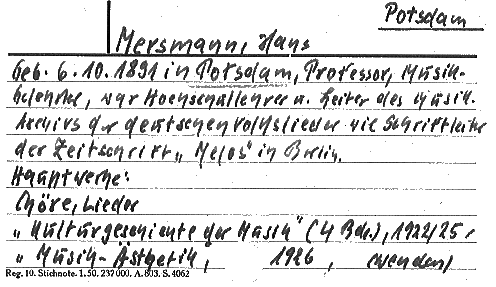 Potsdam
Mersmann, Hans
Geb. 6.10.1891 in Potsdam, Professor, Musik-
gelehrter, war Hochschullehrer u. Leiter des Musik-
Archivs der deutschen Volkslieder wie Schriftleiter
der Zeitschrift „Melos" in Berlin.
Hauptwerke:
Chöre, Lieder
„Kulturgeschichte der Musik" (4 Bde.), 1922/25,
„Musik-Ästhetik, 1926, (wenden)
Reg. 10. Stichnote. 1. 50. 237 000. A. 803. S. 4062